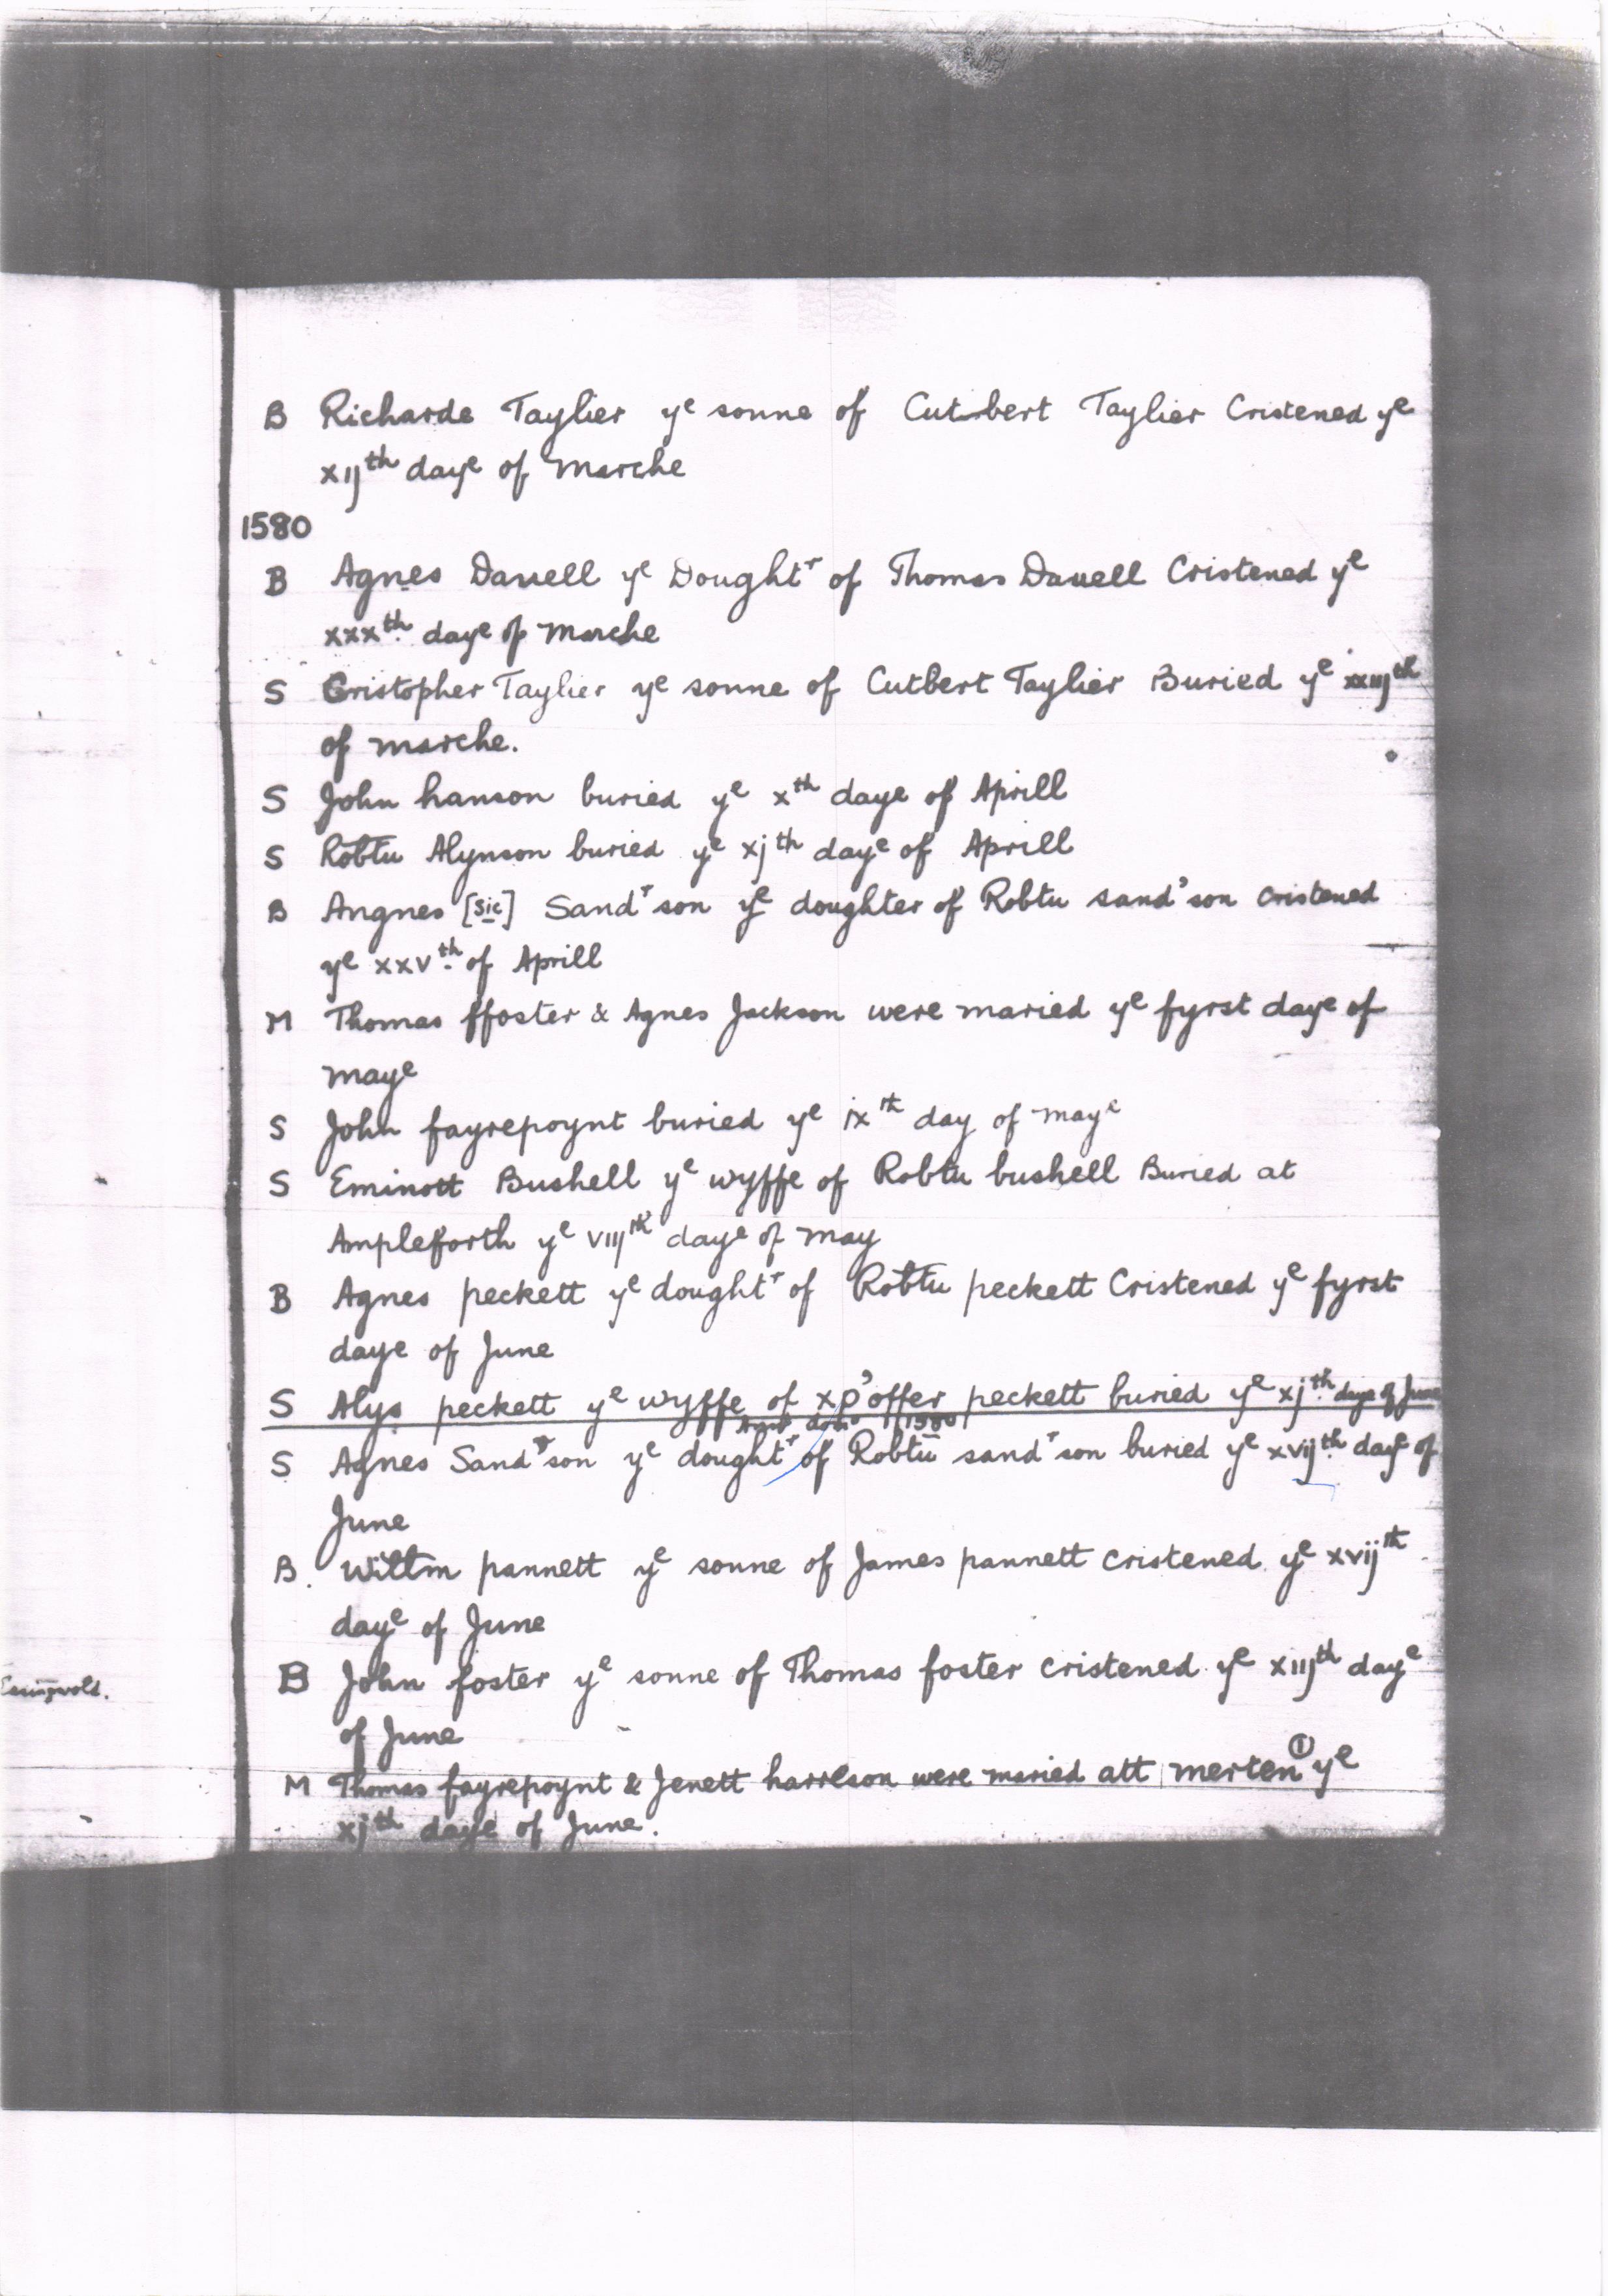 B Richarde Taylier yᵉ sonne of Cutbert Taylier Cristened yᵉ
xijᵗʰ dayᵉ of Marche
1580
B Agnes Dauell yᵉ Doughtʳ of Thomas Dauell Cristened yᵉ
xxxᵗʰ dayᵉ of Marche
S Cristopher Taylier yᵉ sonne of Cutbert Taylier Buried yᵉ xxiijᵗʰ
of marche.
S John hanson buried yᵉ xᵗʰ daye of Aprill
S Robtu Alynson buried yᵉ xjᵗʰ dayᵉ of Aprill
B Angnes [sic] Sandʳson yᵉ doughter of Robtu sand'son cristened
yᵉ xxvᵗʰ of Aprill
M Thomas ffoster & Agnes Jackson were maried yᵉ fyrst dayᵉ of
mayᵉ
S John fayrepoynt buried yᵉ ixᵗʰ day of mayᵉ
S Eminott Bushell yᵉ wyffe of Robtu bushell Buried at
Ampleforth yᵉ viijᵗʰ dayᵉ of may
B Agnes peckett yᵉ doughtʳ of Robtu peckett Cristened yᵉ fyrst
daye of June
S Alys peckett yᵉ wyffe of xp'offer peckett buried yᵉ xjᵗʰ daye of June
1580
S Agnes Sandʳson yᵉ doughtʳ of Robtu sandʳson buried yᵉ xvijᵗʰ dayᵉ of
June
B. Willm pannett yᵉ sonne of James pannett cristened yᵉ xvijᵗʰ
dayᵉ of June
B John foster yᵉ sonne of Thomas foster cristened yᵉ xiijᵗʰ dayᵉ
of June
M Thomas fayrepoynt & Jenett harreson were maried att merten ① yᵉ
xjᵗʰ daye of June.